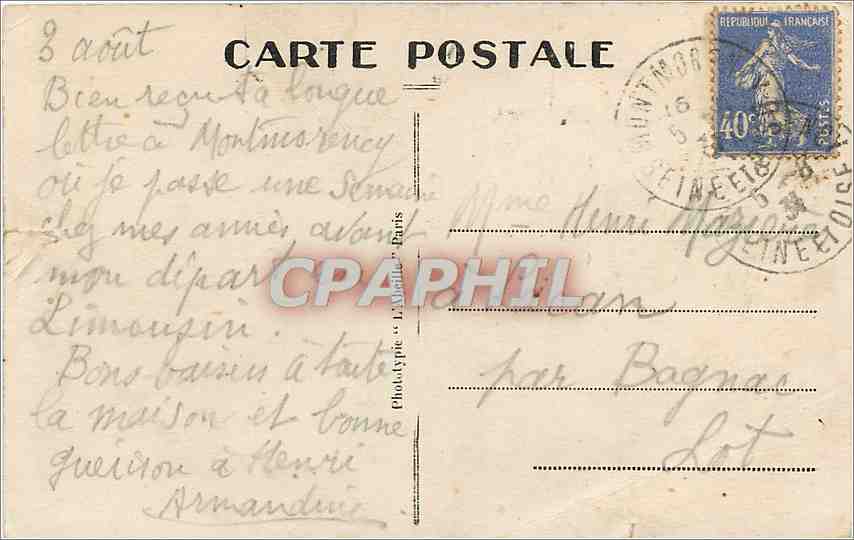 CARTE POSTALE
3 août
Bien reçu ta longue
lettre à Montmorency
où je passe une semaine
chez mes amies avant
mon départ en
Limousin.
Bons baisers à toute
la maison et bonne
guérison à Henri
Armandine
Phototypie "L'Abeille" Paris
REPUBLIQUE FRANÇAISE
40c
POSTES
MONTMORENCY
16
5
SEINE ET OISE
5 -8
34
SEINE ET OISE
Mme Henri
à
par Bagnac
Lot
CPAPHIL